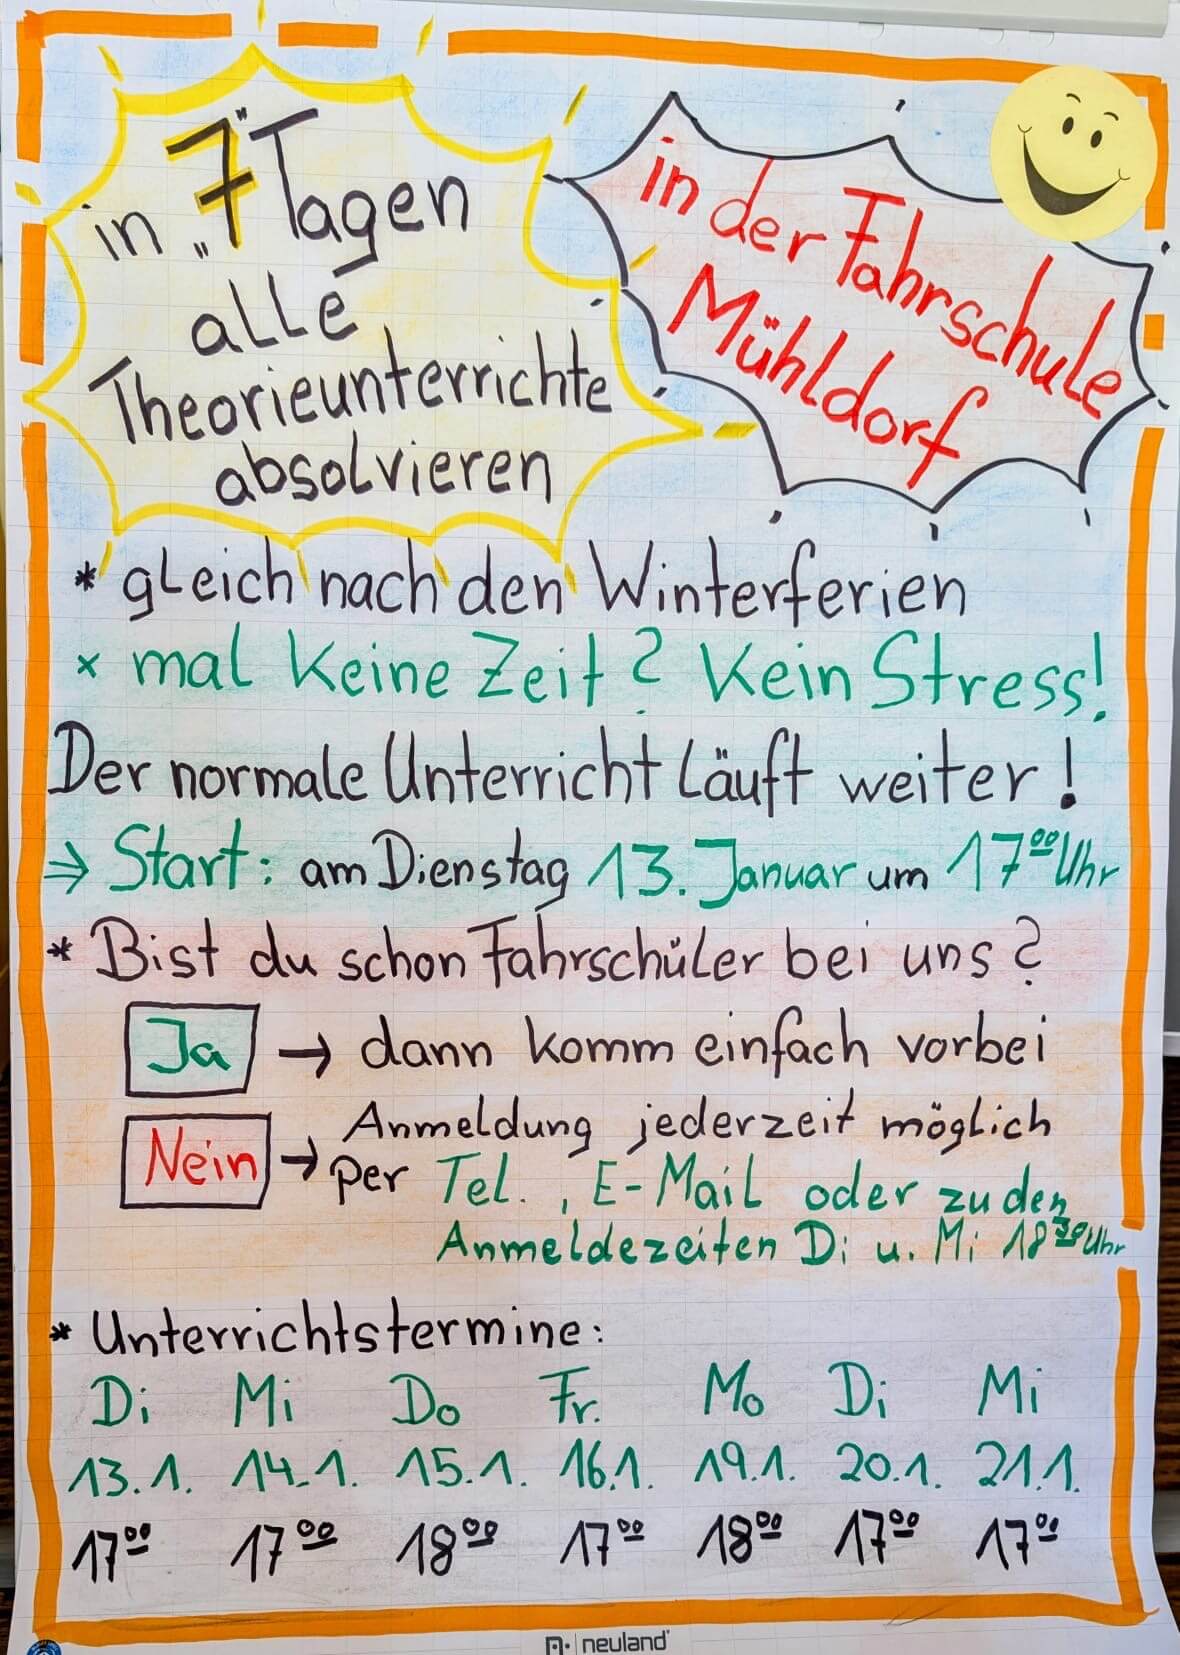 in „7" Tagen
alle
Theorieunterrichte
absolvieren
in der Fahrschule
Mühldorf
* gleich nach den Winterferien
x mal keine Zeit? Kein Stress!
Der normale Unterricht läuft weiter!
⇒ Start: am Dienstag 13. Januar um 17⁰⁰ Uhr
* Bist du schon Fahrschüler bei uns?
Ja → dann komm einfach vorbei
Nein → Anmeldung jederzeit möglich
per Tel., E-Mail oder zu den
Anmeldezeiten Di u. Mi 18³⁰ Uhr
* Unterrichtstermine:
Di Mi Do Fr. Mo Di Mi
13.1. 14.1. 15.1. 16.1. 19.1. 20.1. 21.1.
17⁰⁰ 17⁰⁰ 18⁰⁰ 17⁰⁰ 18⁰⁰ 17⁰⁰ 17⁰⁰
neuland